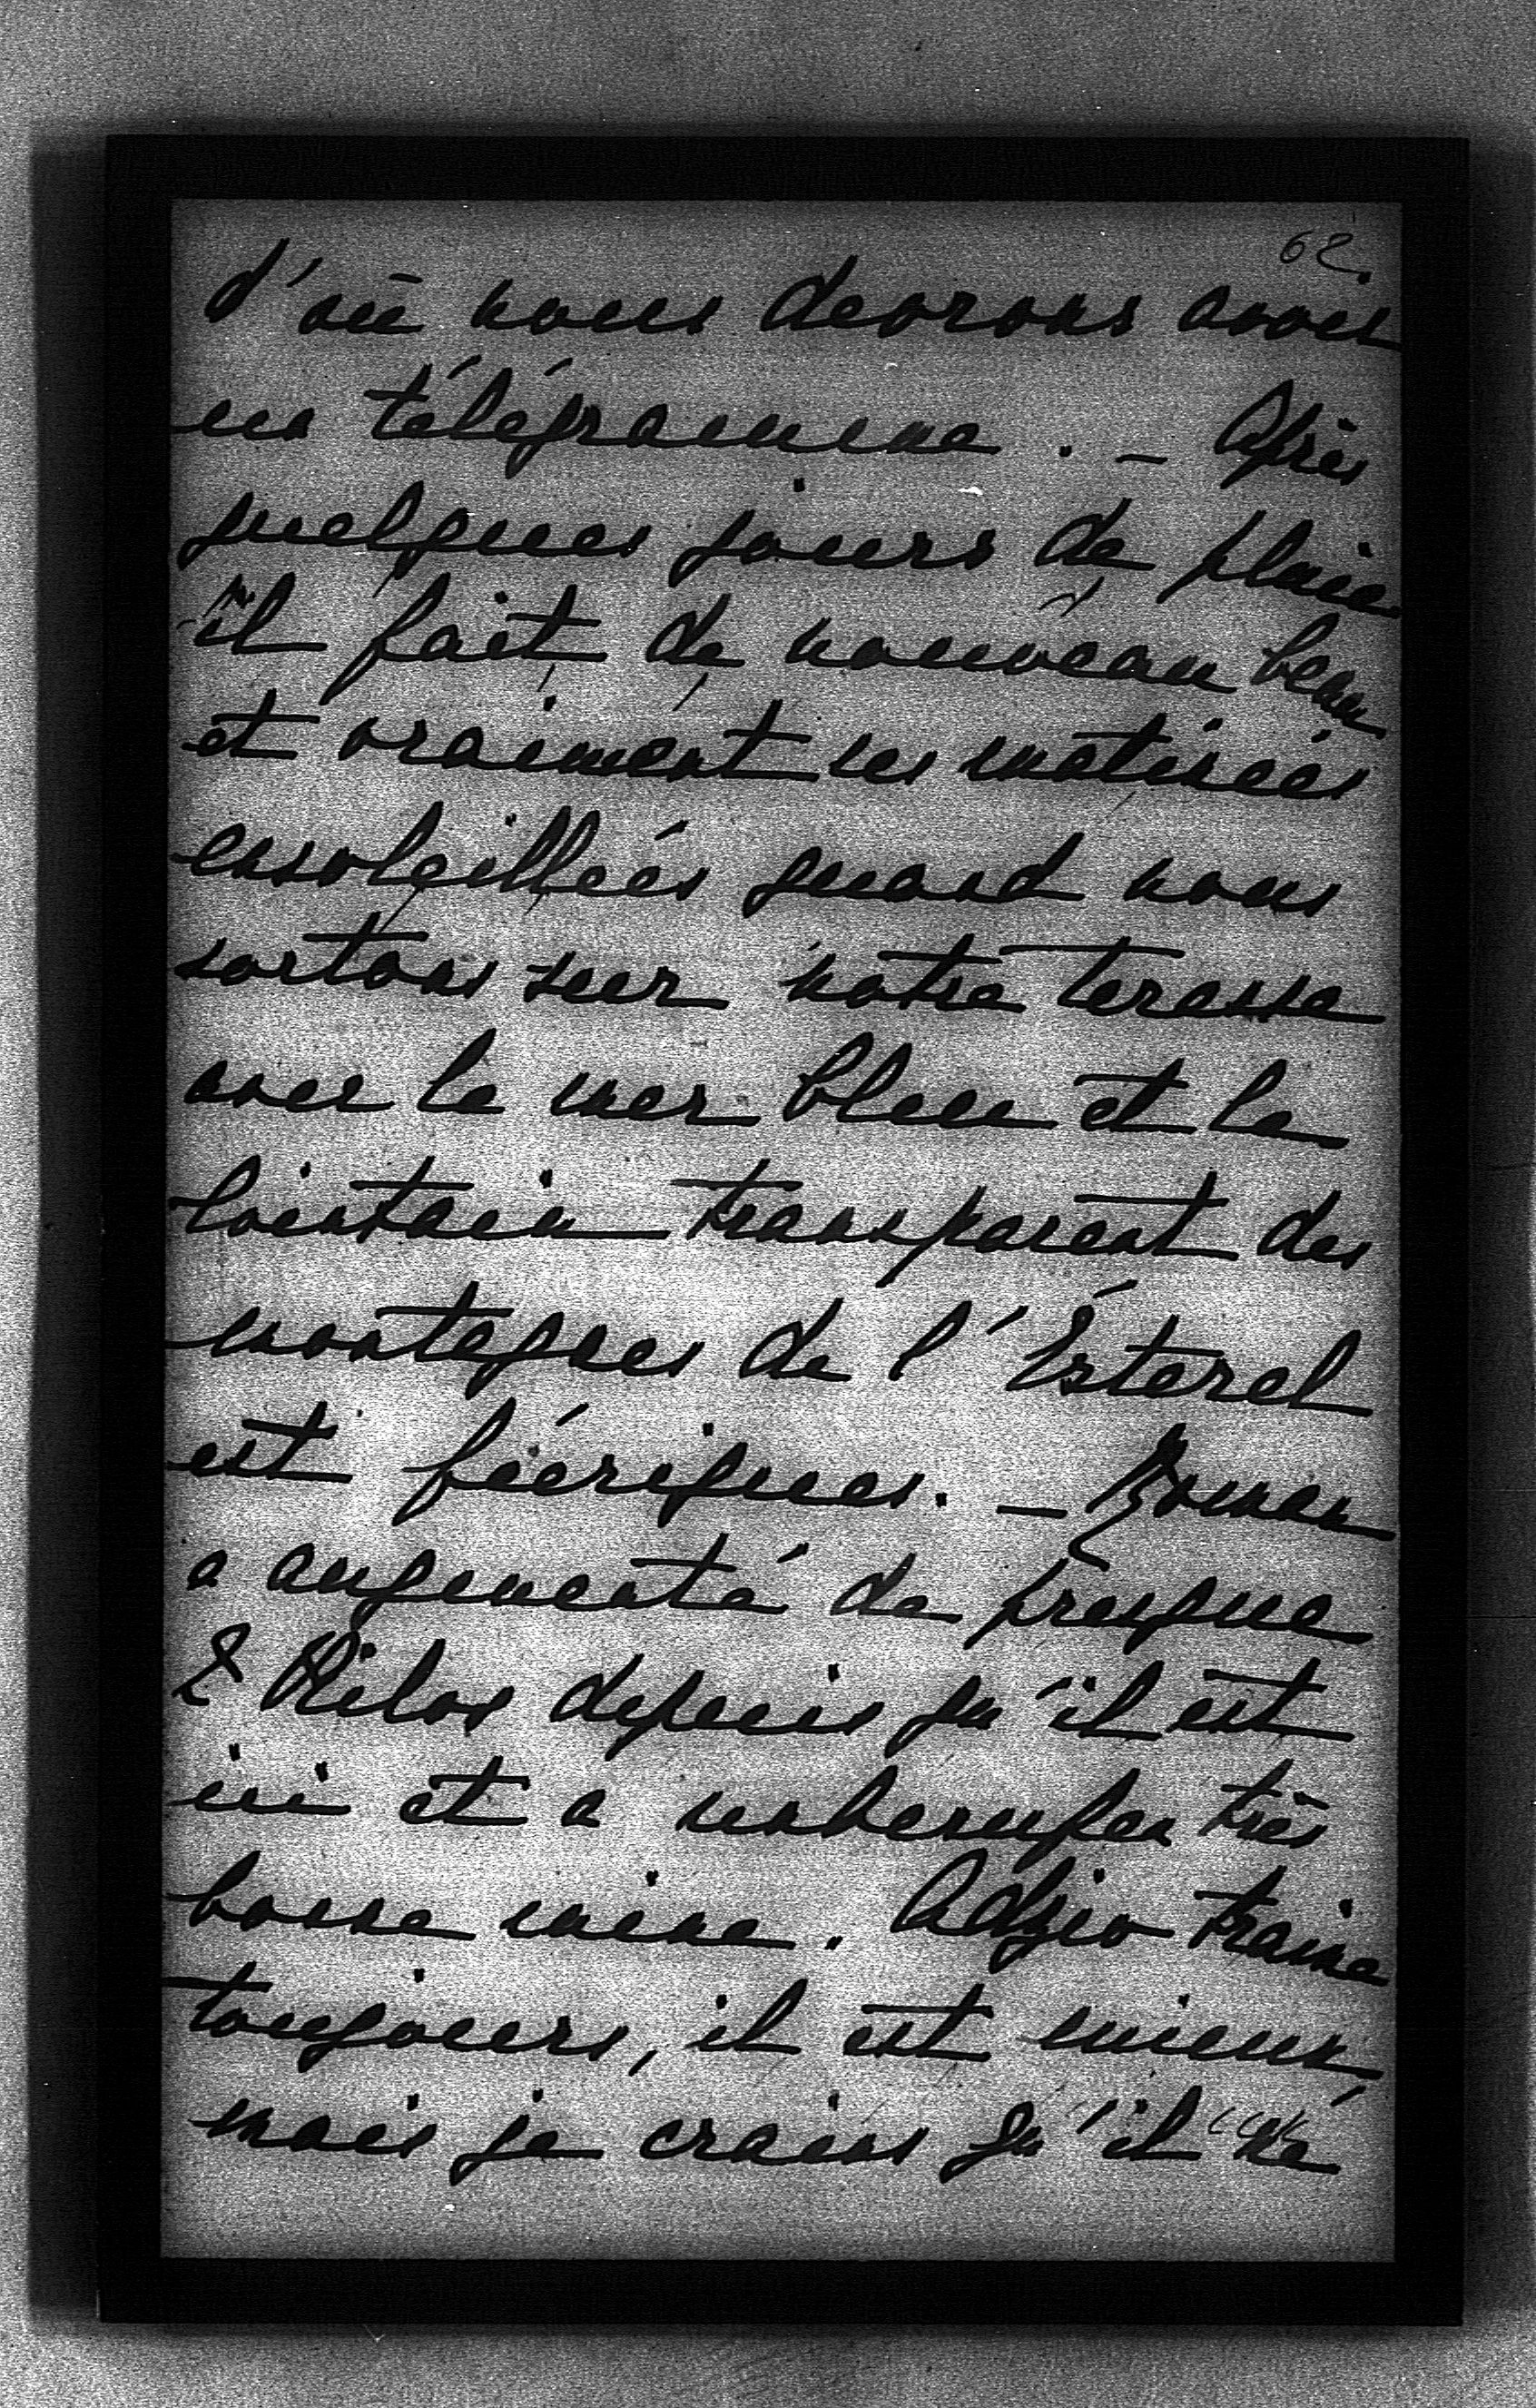 62.
d'où nous devrons avoir
un télégramme. — Après
quelques jours de pluie
il fait de nouveau beau
et vraiment les matinées
ensoleillées quand nous
sortons sur notre terasse
avec la mer bleue et le
lointain transparent des
montagnes de l'Ésterel
est féeriques. — Roman
a augmenté de presque
2 Kilos depuis qu'il est
ici et a unberufen très
bonne mine. Adzio traine
toujours, il est mieux,
mais je crains qu'il ne